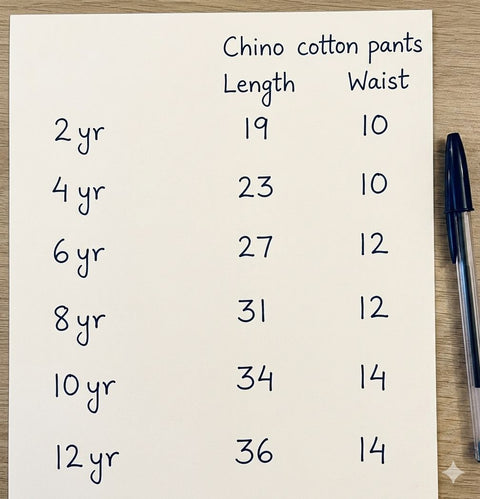 Chino cotton pants
Length Waist
2 yr 19 10
4 yr 23 10
6 yr 27 12
8 yr 31 12
10 yr 34 14
12 yr 36 14